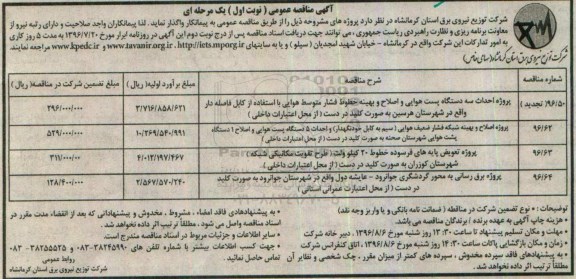 آگهی مناقصه عمومی ( نوبت اول ) یک مرحله ای
شرکت توزیع نیروی برق استان کرمانشاه در نظر دارد پروژه های مشروحه ذیل را از طریق مناقصه عمومی به پیمانکار واگذار نماید. لذا پیمانکاران واجد صلاحیت و دارای رتبه نیرو از
معاونت برنامه ریزی و نظارت راهبردی ریاست جمهوری، می توانند جهت دریافت اسناد مناقصه پس از درج نوبت دوم این آگهی در روزنامه ابرار مورخ ۱۳۹۶/۷/۲۰ به مدت ۵ روز کاری
به امور تدارکات این شرکت واقع در کرمانشاه - خیابان شهید امجدیان ( سیلو ) و یا به سایتهای http://iets.mporg.ir ، www.tavanir.org.ir و www.kpedc.ir مراجعه نمایند.
شرکت توزیع نیروی برق استان کرمانشاه (سهامی خاص)
شماره مناقصه
شرح مناقصه
مبلغ برآورد اولیه( ریال )
مبلغ تضمین شرکت در مناقصه( ریال )
۹۶/۵۰( تجدید )
پروژه احداث سه دستگاه پست هوایی و اصلاح و بهینه خطوط فشار متوسط هوایی با استفاده از کابل فاصله دار واقع در شهرستان هرسین به صورت کلید در دست ( از محل اعتبارات داخلی )
۳/۷۱۶/۸۵۸/۶۲۱
۲۹۶/۰۰۰/۰۰۰
۹۶/۶۲
پروژه اصلاح و بهینه شبکه فشار ضعیف هوایی ( سیم به کابل خودنگهدار) و احداث ۵ دستگاه پست هوایی و اصلاح ۱ دستگاه پست هوایی شهرستان صحنه به صورت کلید در دست ( از محل اعتبارات داخلی )
۱۰/۲۶۹/۵۴۰/۹۹۱
۵۲۹/۰۰۰/۰۰۰
۹۶/۶۳
پروژه تعویض پایه های فرسوده خطوط ۲۰ کیلو ولت( طرح تقویت مکانیکی شبکه) شهرستان کوزران به صورت کلید در دست ( از محل اعتبارات داخلی )
۴/۰۱۳/۱۹۷/۴۶۷
۳۱۱/۰۰۰/۰۰۰
۹۶/۶۴
پروژه برق رسانی به محور گردشگری جوانرود - عایشه دول واقع در شهرستان جوانرود به صورت کلید در دست ( از محل اعتبارات عمرانی استانی )
۲/۵۶۷/۵۷۰/۲۴۰
۱۲۸/۴۰۰/۰۰۰
توضیحات : • نوع تضمین شرکت در مناقصه ( ضمانت نامه بانکی و یا واریز وجه نقد)
• هزینه چاپ آگهی به عهده برنده / برندگان مناقصه می باشد.
• مهلت و مکان تسلیم پیشنهاد تا ساعت ۱۲:۳۰ روز شنبه مورخ ۱۳۹۶/۸/۶ ، دبیر خانه شرکت
• زمان و مکان بازگشایی پاکات ساعت ۱۴:۳۰ روز شنبه مورخ ۱۳۹۶/۸/۶ ، اتاق کنفرانس شرکت
• به پیشنهادهای فاقد سپرده مخدوش ، سپرده های کمتر از میزان مقرر ، چک شخصی و نظایر آن مطلقاً ترتیب اثر داده نخواهد شد.
• به پیشنهادهای فاقد امضاء ، مشروط ، مخدوش و پیشنهاداتی که بعد از انقضاء مدت مقرر در اسناد مناقصه واصل می شود . مطلقاً ترتیب اثر داده نخواهد شد .
• سایر اطلاعات و جزئیات مربوط در اسناد مناقصه مندرج است
• جهت کسب اطلاعات بیشتر با شماره تلفن های ۳۸۲۴۵۹۹۰-۰۸۳ و ۳۸۲۵۵۵۲۵-۰۸۳ تماس حاصل نمائید.
روابط عمومی
شرکت توزیع نیروی برق استان کرمانشاه